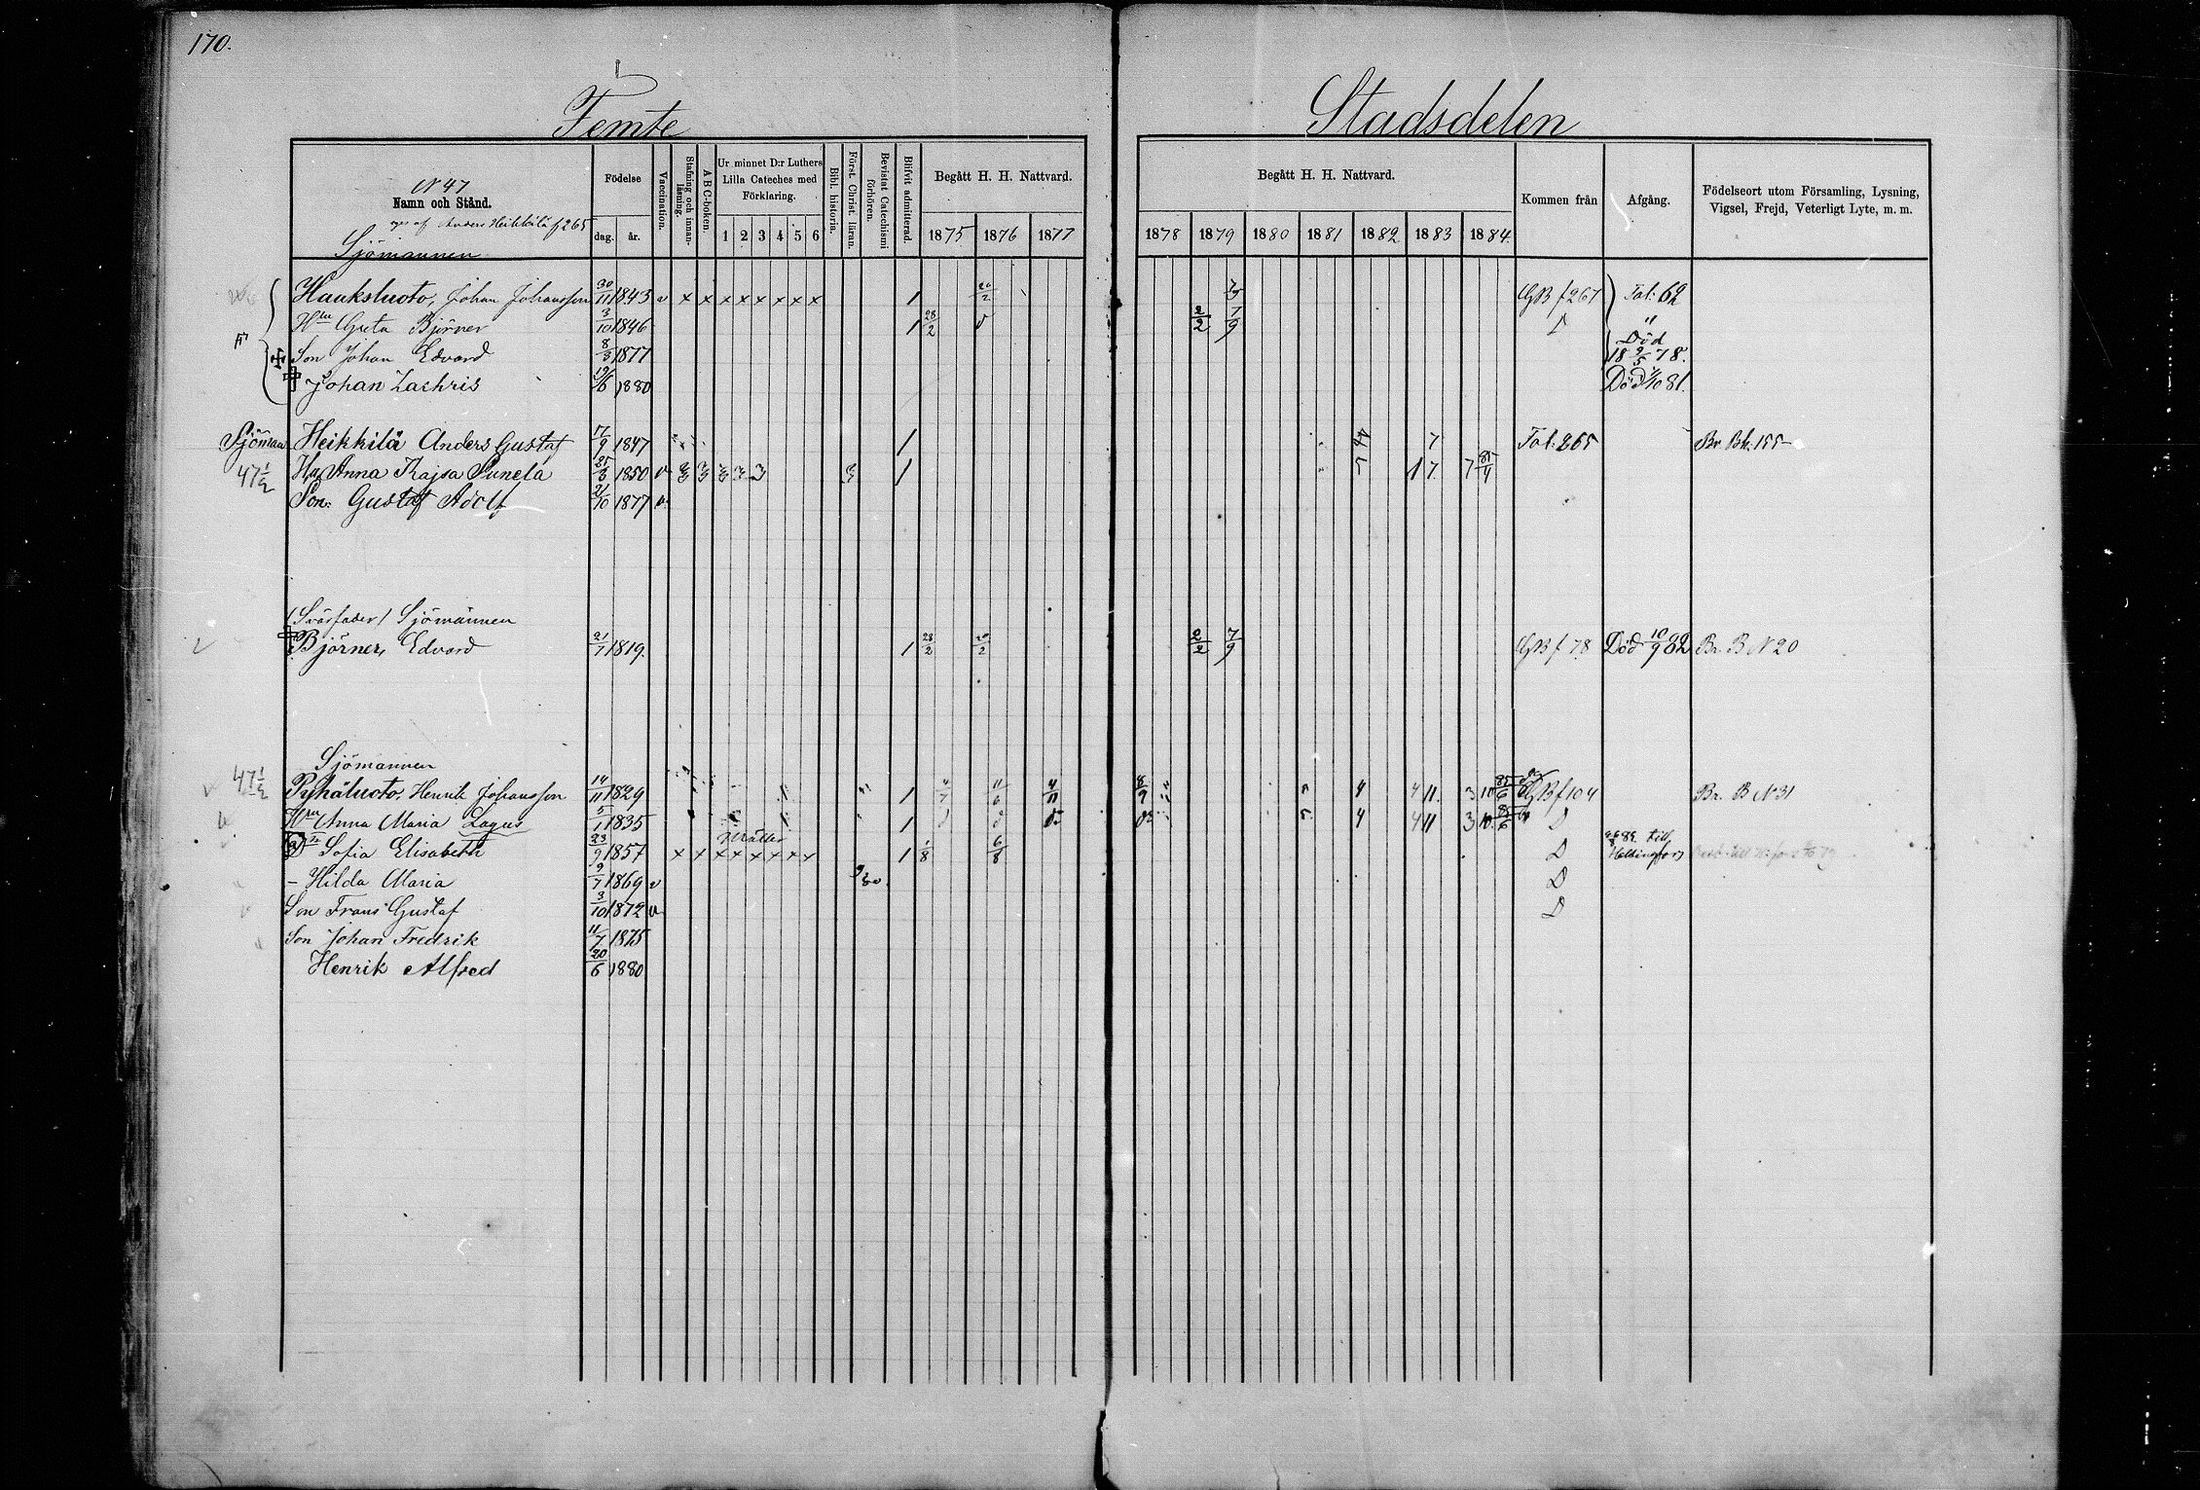 170.
Femte Stadsdelen
N 47
Namn och Stånd.
eges af Anders Heikkilä f 265
Födelse
dag. år.
Vaccination.
Stafning och innanläsning.
A B C-boken.
Ur minnet D:r Luthers Lilla Cateches med Förklaring.
1 2 3 4 5 6
Bibl. historia.
Först. Christ. läran.
Bevistat Catechismi förhören.
Blifvit admitterad.
Begått H. H. Nattvard.
1875 1876 1877
Begått H. H. Nattvard.
1878 1879 1880 1881 1882 1883 1884.
Kommen från
Afgång.
Födelseort utom Församling, Lysning, Vigsel, Frejd, Veterligt Lyte, m. m.
Sjömannen
Hauksluoto, Johan Johansson 30/11 1843 v x x x x x x x x 1 20/2 GB f 267 Fol: 62
Hru Greta Björner 3/10 1846 1 28/2 2/2 7/9 D "
Son Johan Edvard 8/3 1877 Död 18 9/5 78.
Johan Zachris 19/6 1880 Död /10 81.
Sjöman Heikkilä Anders Gustaf 17/9 1847 1 7 Fol: 265 Br. Bk. 155
47 1/2 Hu Anna Kajsa Sunela 25/3 1850 v 1 5 1 7 7 85/4
Son: Gustaf Adolf 21/10 1877 v.
(Svärfader) Sjömannen
Björner, Edvard 21/7 1819. 1 28/2 20/2 2/2 7/9 GB f 78 Död 10/9 82 Br. B N 20
Sjömannen
47 1/2 Pyhäluoto, Henrik Johansson 14/11 1829 1 11/6 4/11 8/9 5 4 4 11. 3 10 85/6 GB f 104 Br. B N 31
Hru Anna Maria Lagus 5/1 1835 1 5. 4 4 11 3 10. 85/6 D
Sofia Elisabeth 23/9 1857 x x x x x x x x 1 1/8 6/8 D till Helsingfors
– Hilda Maria 9/7 1869 v D
Son Frans Gustaf 3/10 1872 v D
Son Johan Fredrik 11/7 1875
Henrik Alfred 20/6 1880